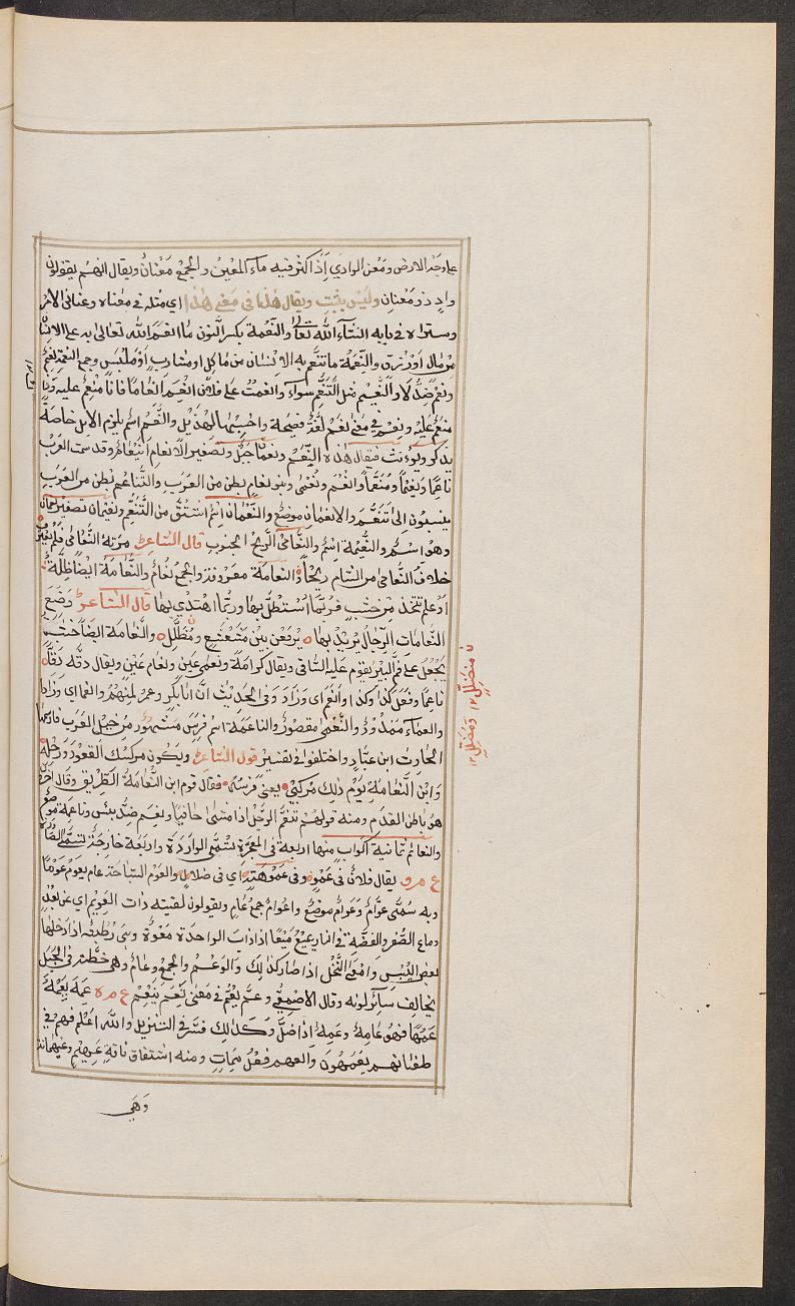 على وجه الارض ومَعْن الوادي إذا كثر فيه ماء المَعِين والجمع مَعْنانٌ ويقال انهم يقولون
وادٍ ذو مَعْنانٍ وليس بثبت ويقال هذا في معنى هذا اي مثله في معناه وعناني الامر
وستراه في بابه انشاء الله تعالى والنِّعمة بكسر النون ما انعم الله تعالى به على الانسان
من مال او رزق والنَّعمة ما تنعّم به الانسان من ماكل او مشارب او ملبس وجمع النعمة نِعَمٌ
ونَعَم ضدّ لا والنعيم مثل التنعّم سواء وانعمتُ على فلان انعم انعامًا فانا منعِمٌ عليه وانا
منعَمٌ عليه ونعيم في معنى نعم لغة فصيحة واحسبها لهُذيل والنَّعَم اسم يلزم الابل خاصة
يذكر ويؤنث فيقال هذه النَّعَم ونعمان جبل وتصغير الانعام انيعام وقد سمت العرب
ناعمًا ونعيمًا ومنعّمًا وانعُم ونُعْمى وبنو نعام بطن من العرب والتناعم بطن من العرب
ينسبون الى تنعُم والانعمان موضع والنعمان اسم اشتق من التنعّم ونعيمان تصغير نعمان
وهو اسم والنُعيمة اسم والنعامى الريح الجنوب قال الشاعر مرته النعامى فلم يعترف
خلاف النعامى من الشام ريحًا والنعامة معروفة والجمع نعام والنعامة ايضًا ظلة
او علم يتخذ من خشب فربما استظل بها وربما اهتدي بها قال الشاعر وضع
النعامات الرجال بريدها يرفعن بين مشعشع ومظلل والنعامة ايضًا خشبة
يجعل على فم البئر يقوم عليه الساقي ويقال كرامةً ونعمى عين ونعام عين ويقال دقّه دقًّا
ناعمًا وفعل كذا وكذا وانعم اى وزاد وفى الحديث انّ ابا بكر وعمر لمنهم وانعما اى وزادا
والنعماء ممدود والنُّعمى مقصور والناعمة اسم فرس مشهور من خيل العرب فارسها
الحارث ابن عباد واختلفوا في تفسير قول الشاعر ويكون مركبك القعود ورحله
وابن النعامة يوم ذلك مركبي يعني فرسه فقال قوم ابن النعامة الطريق وقال آخرون
هو باطن القدم ومنه قولهم تنعّم الرجل اذا مشى حافيًا ونعم ضد بئس وناعمة موضع
والنعائم ثمانية كواكب منها اربعة في المجرة تسمى الواردة واربعة خارجة تسمى الصادرة
ع م و يقال فلان في عَمْوٍ وفي عَمْوهَتِه اي في ضلال والعوم السباحة عام يعوم عومًا
وبه سمى عوّامٌ وعَوام موضع واعوام جمع عام ويقولون لقيته ذات العُويم اي عن بُعد
وماع الصُفر والفضة في النار يميع ميعًا اذا ذاب
لبعض اليبس وامعى النخل اذا صار كذلك
يخالف سائر لونه وقال الاصمعي وعم يعم في معنى نعم ينعم ع م ه عمه يعمه
عمهًا فهو عامه وعمه اذا ضل وكذلك فسّر في التنزيل والله اعلم فهم في
طغيانهم يعمهون ومنه اشتقاق ناقة عيهم وعيهمانة
وهي